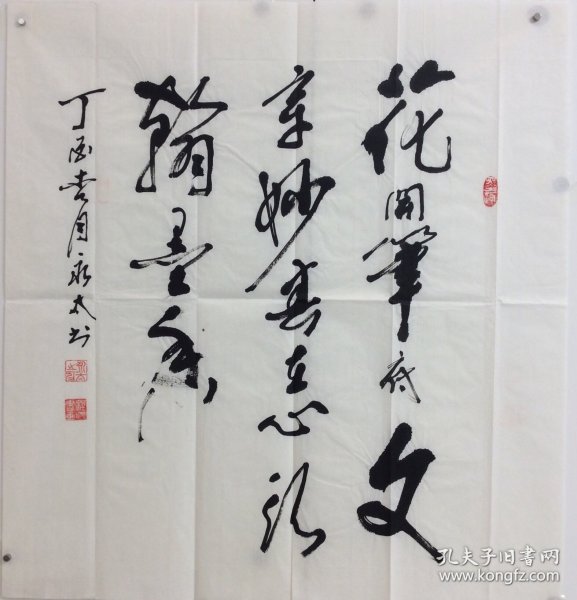 花開筆底文
章妙春在心頭
翰墨香
丁酉杏月永太书
孔夫子旧书网
www.kongfz.com